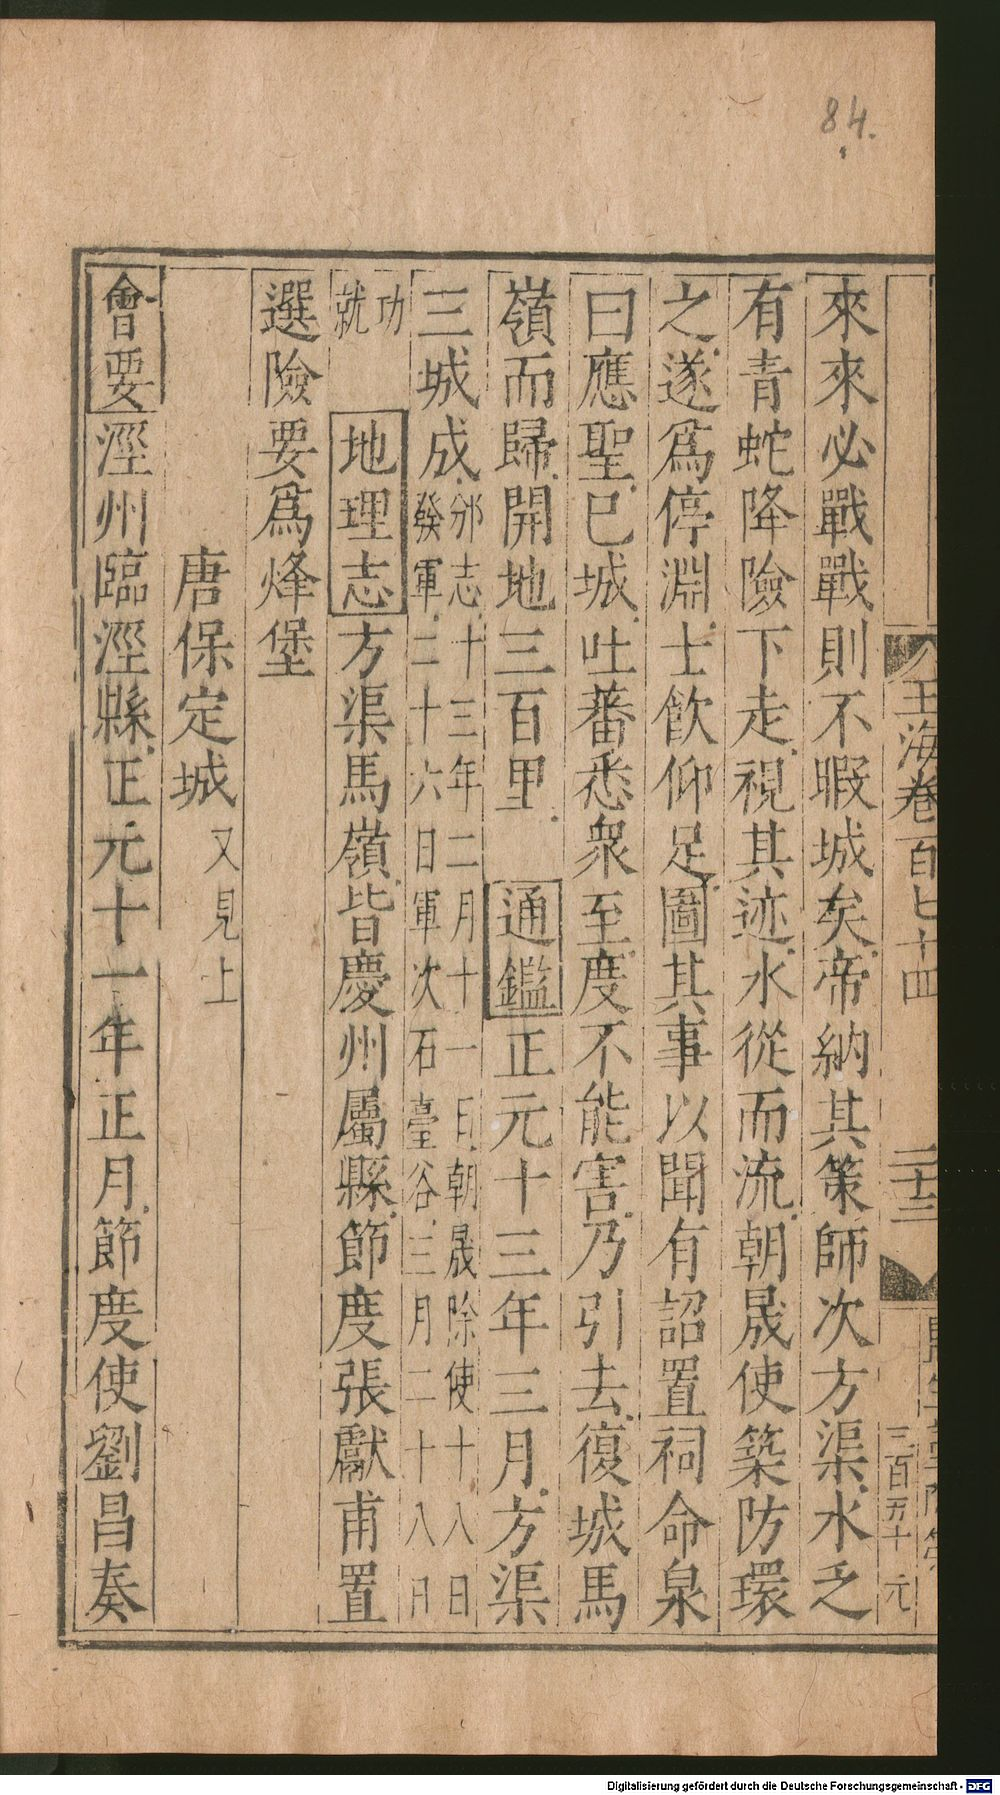 84.
玉海卷百七十四
二十二
三百五十 元
來來必戰戰則不暇城矣帝納其策師次方渠水乏
有青蛇降險下走視其迹水從而流朝晟使築防環
之遂爲停淵士飲仰足圖其事以聞有詔置祠命泉
曰應聖已城吐蕃悉衆至度不能害乃引去復城馬
嶺而歸開地三百里 通鑑正元十三年三月方渠
三城成邠志十三年二月十一日朝晟除使十八日
發軍二十六日軍次石臺谷三月二十八月
功
就 地理志方渠馬嶺皆慶州屬縣節度張獻甫置
選險要爲烽堡
唐保定城又見上
會要涇州臨涇縣正元十一年正月節度使劉昌奏
Digitalisierung gefördert durch die Deutsche Forschungsgemeinschaft - DFG